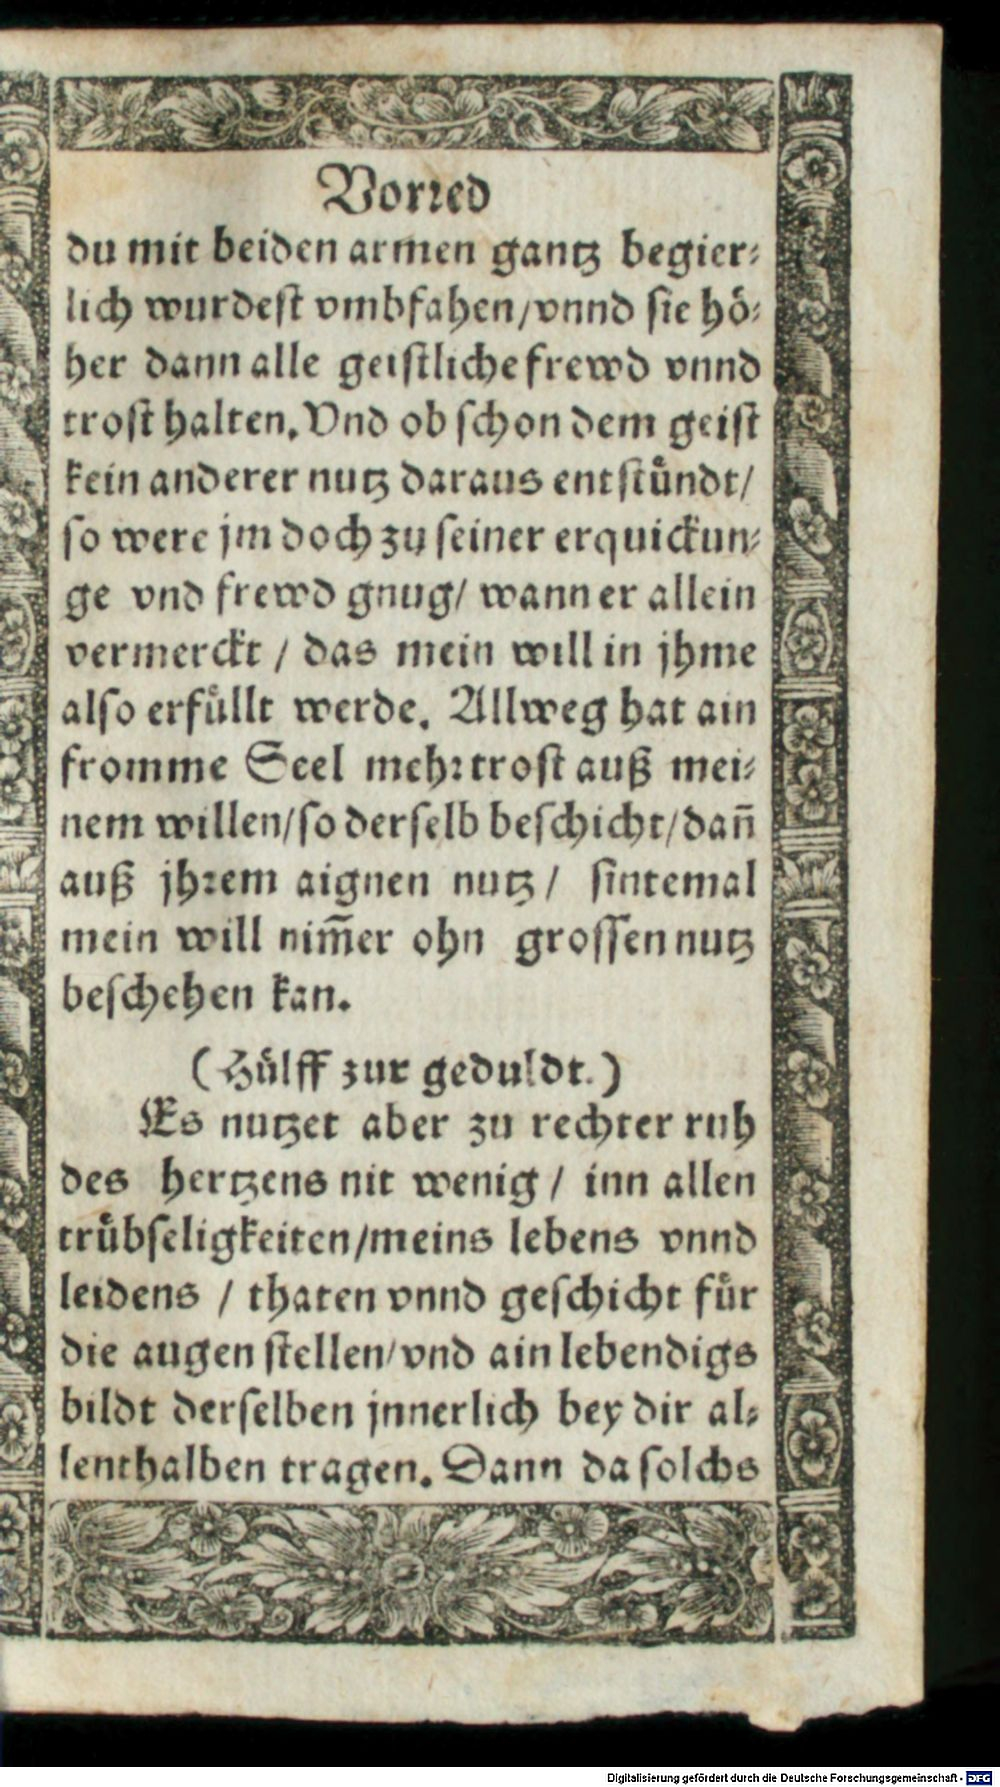 Vorred
du mit beiden armen gantz begier⸗
lich wurdest vmbfahen/vnnd sie hoͤ⸗
her dann alle geistliche frewd vnnd
trost halten. Vnd ob schon dem geist
kein anderer nutz daraus entstuͤndt/
so were jm doch zu seiner erquickun⸗
ge vnd frewd gnug/ wann er allein
vermerckt / das mein will in jhme
also erfuͤllt werde. Allweg hat ain
fromme Seel mehr trost auß mei⸗
nem willen/so derselb beschicht/dañ
auß jhrem aignen nutz / sintemal
mein will nim̃er ohn grossen nutz
beschehen kan.
(Huͤlff zur geduldt.)
Es nutzet aber zu rechter ruh
des hertzens nit wenig / inn allen
truͤbseligkeiten/meins lebens vnnd
leidens / thaten vnnd geschicht fuͤr
die augen stellen/vnd ain lebendigs
bildt derselben jnnerlich bey dir al⸗
lenthalben tragen. Dann da solchs
Digitalisierung gefördert durch die Deutsche Forschungsgemeinschaft - DFG